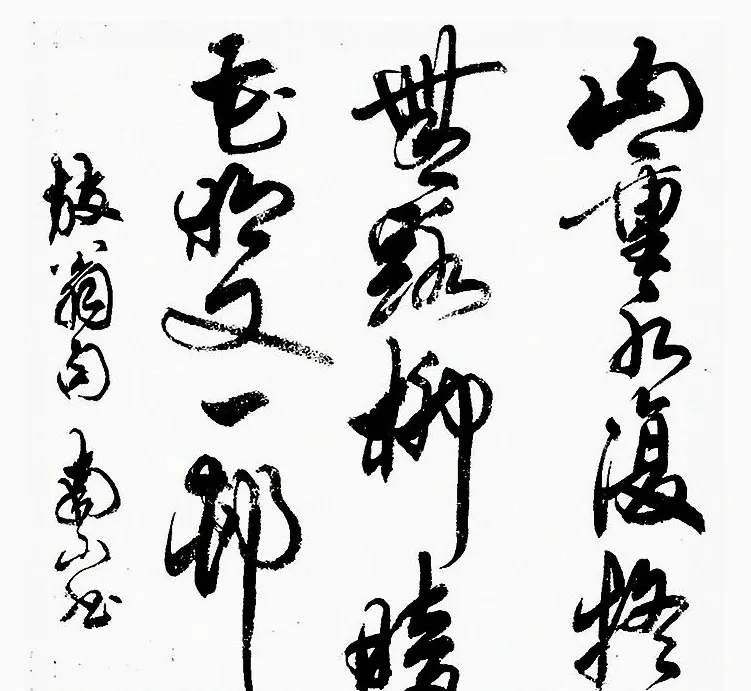 山重水復疑
無路柳暗
花明又一邨
放翁句 南山